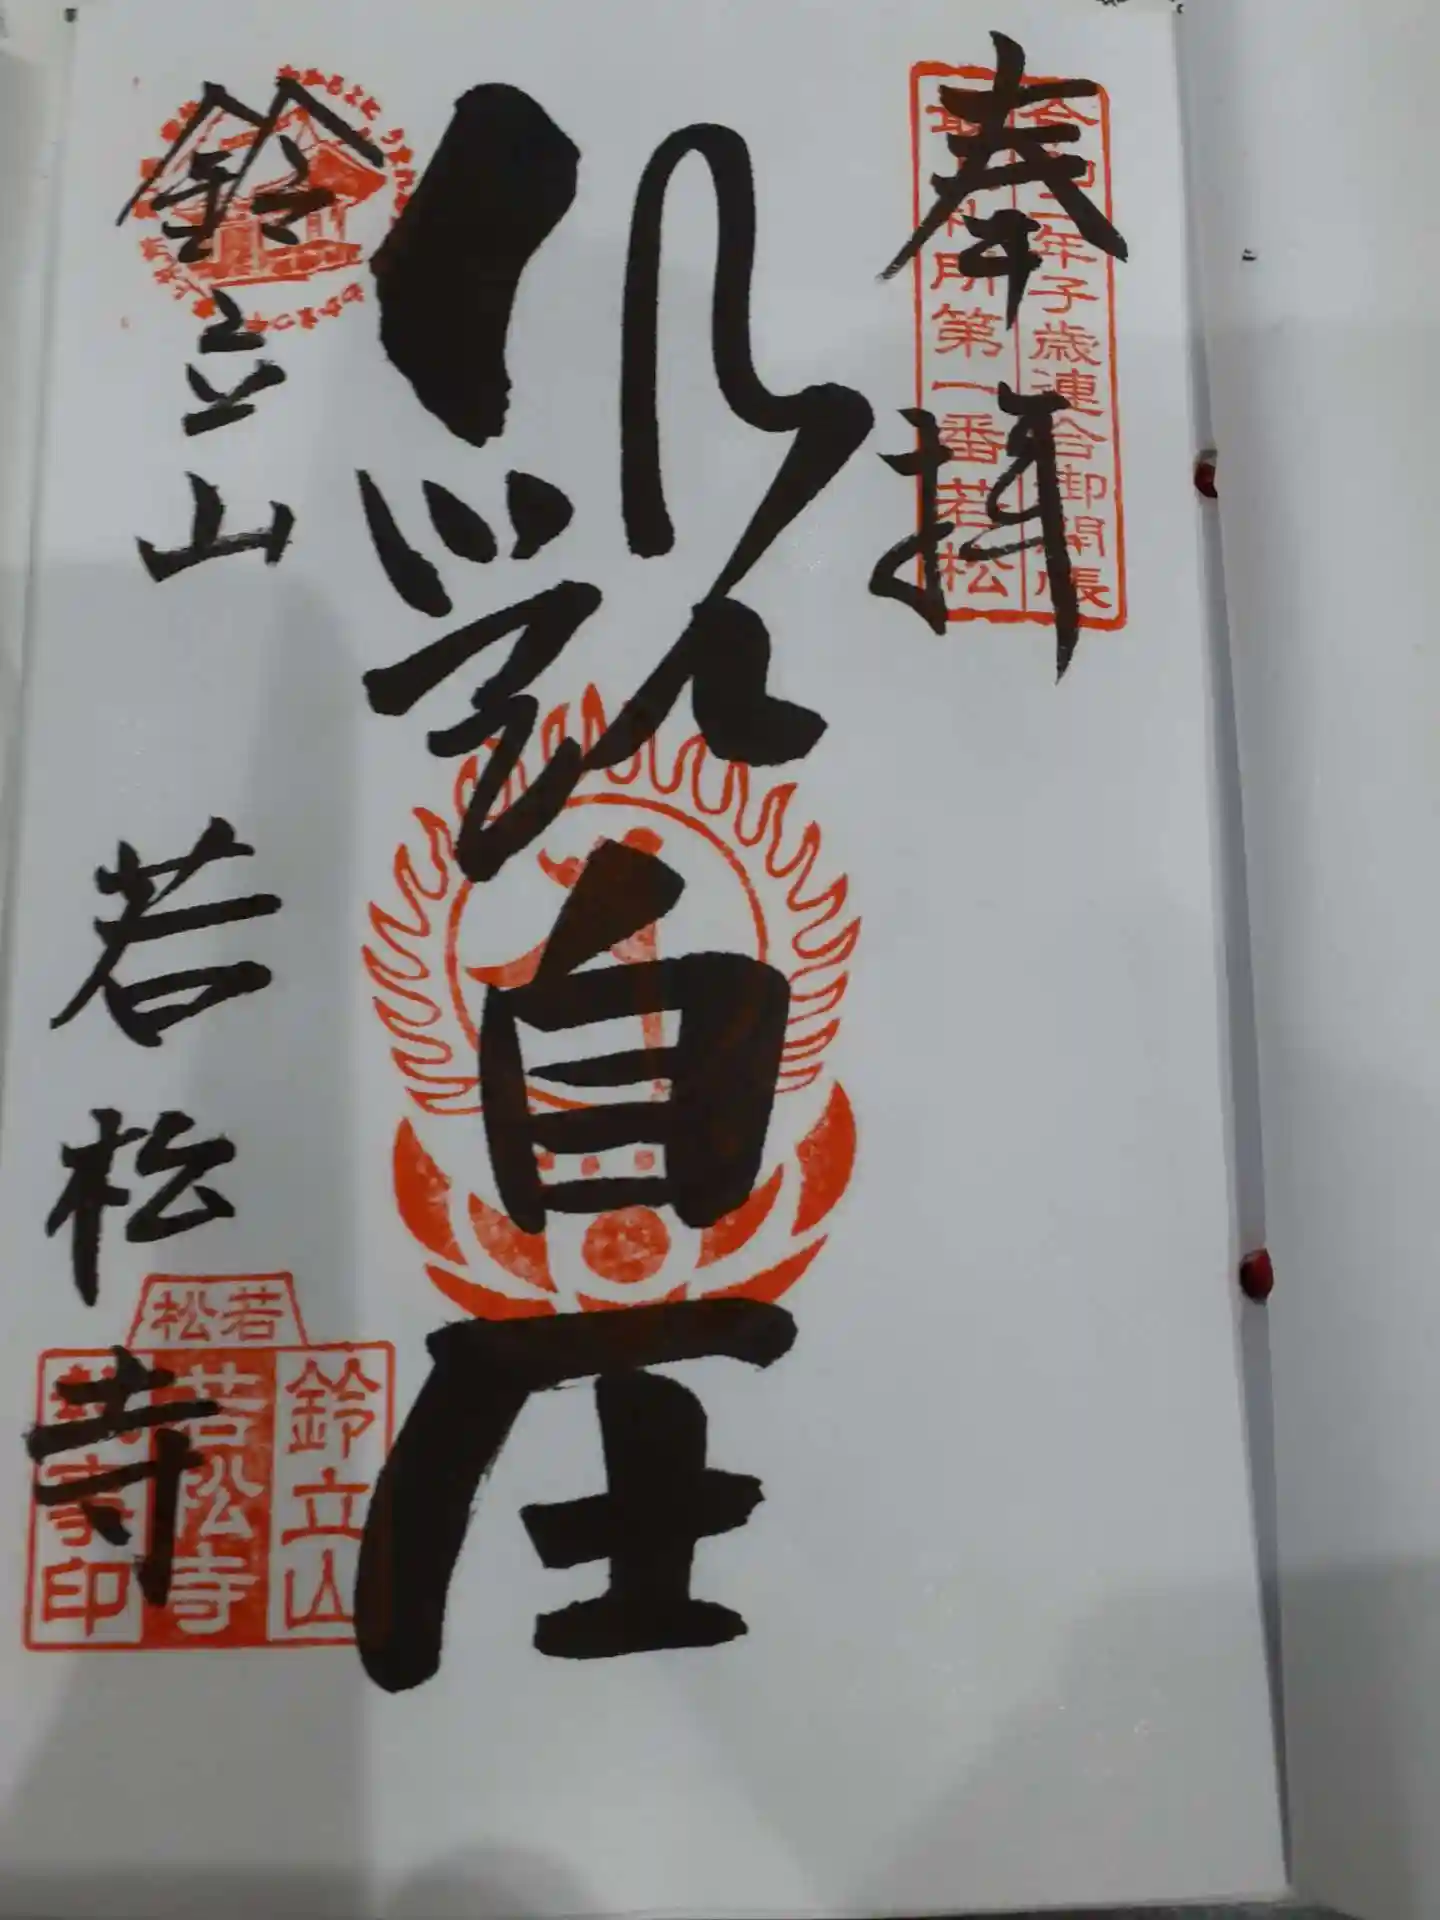 奉拝
令和二年子歳連合御開帳
最上札所第一番若松
観自在
鈴立山
若松寺
若松
鈴立山
若松寺
印